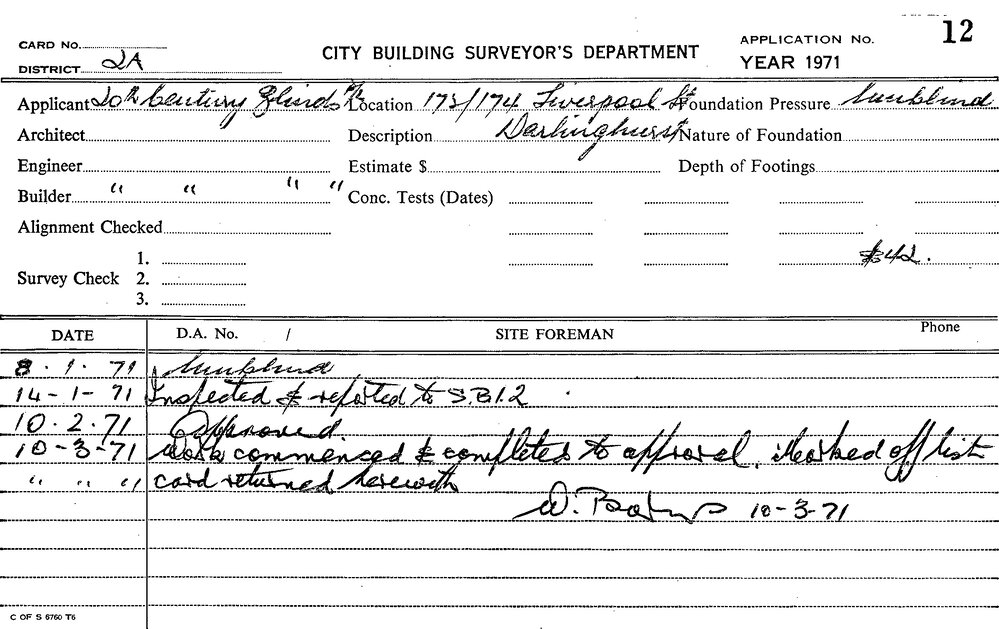 CARD No.
DISTRICT 2A
CITY BUILDING SURVEYOR'S DEPARTMENT
APPLICATION No. 12
YEAR 1971
Applicant 20th Century Blinds P/L Location 173/174 Liverpool St Foundation Pressure Sunblind
Architect Description Darlinghurst Nature of Foundation
Engineer Estimate $ Depth of Footings
Builder " " " " Conc. Tests (Dates)
Alignment Checked
$42.
Survey Check 1.
2.
3.
DATE D.A. No. / SITE FOREMAN Phone
8.1.71 Sunblind
14-1-71 Inspected & reported to S.B.I.2
10.2.71 Approved.
10-3-71 Work commenced & completed to approval. Marked off list
" " " card returned herewith
W. 10-3-71
C OF S 6760 T6